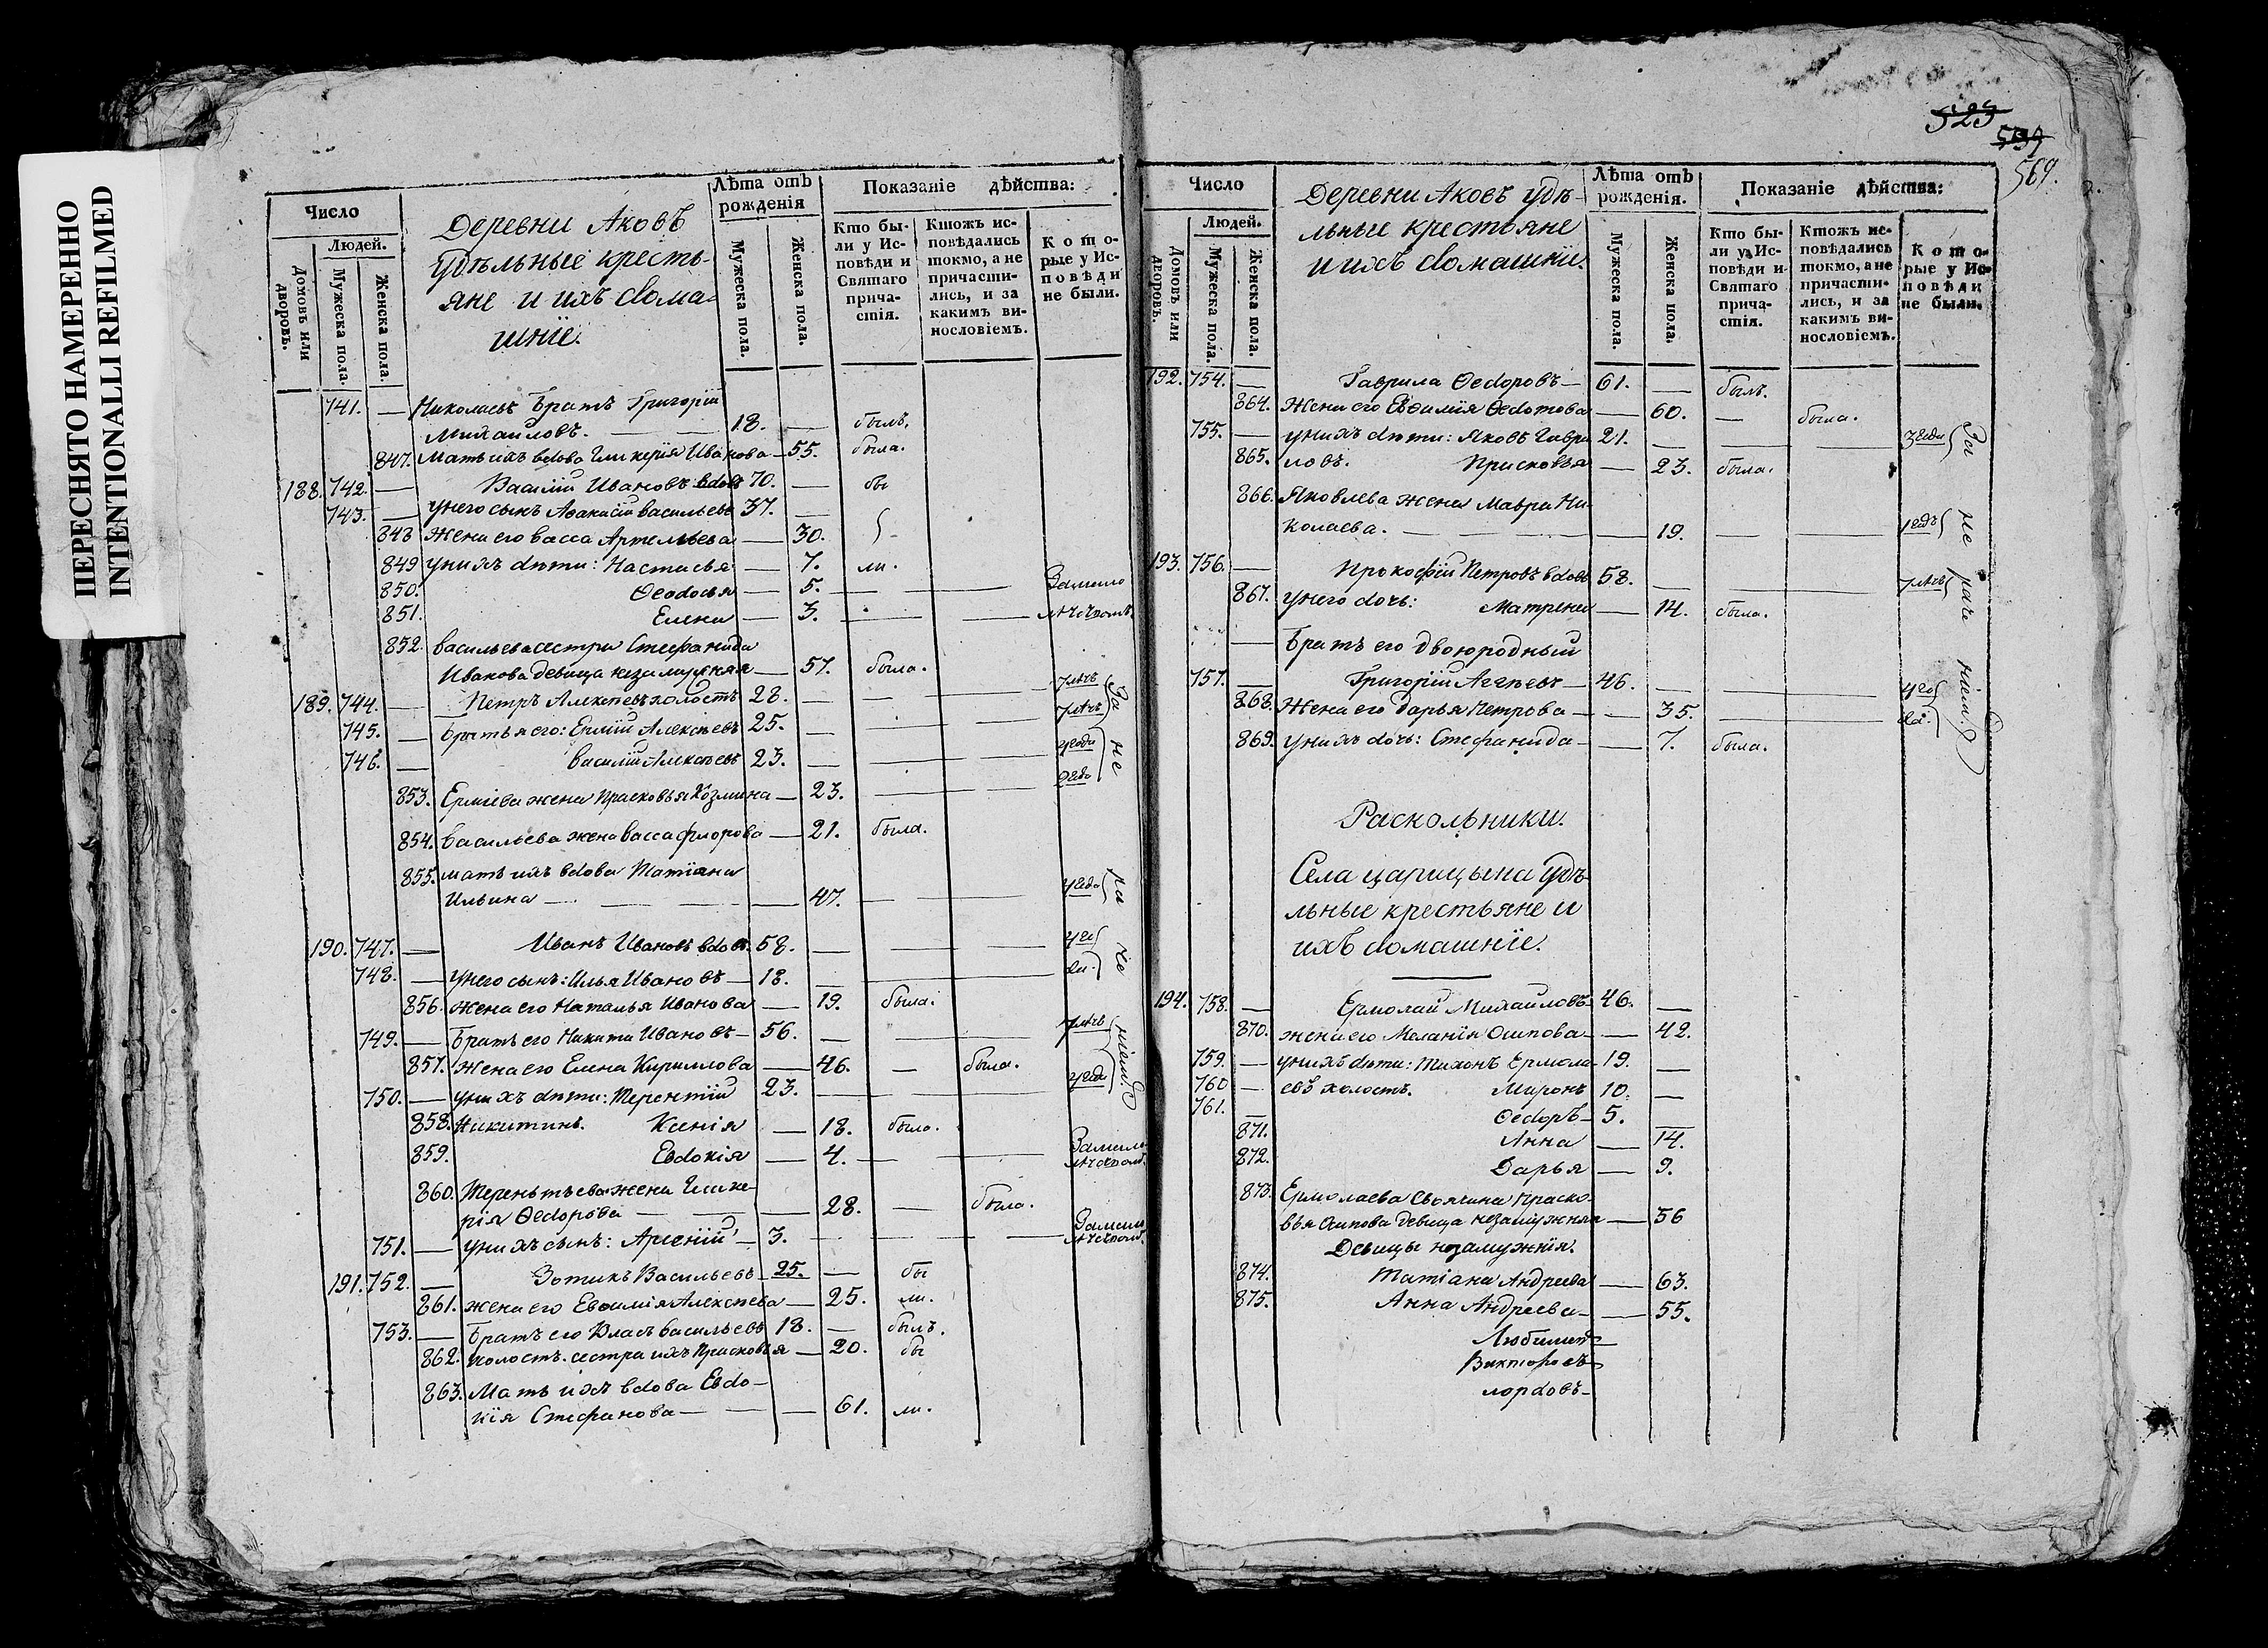 ПЕРЕСНЯТО НАМЕРЕННО
INTENTIONALLI REFILMED
Число
Людей.
Домовъ или дворовъ.
Мужеска пола.
Женска пола.
Деревни Аковъ
удѣльные кресть-
яне и ихъ дома-
шніе.
Лѣта отъ рожденія
Мужеска пола.
Женска пола.
Показаніе дѣйства:
Кто бы-
ли у Ис-
повѣди и
Святаго
прича-
стія.
Ктожъ ис-
повѣдались
токмо, а не
причасти-
лись, и за
какимъ ви-
нословіемъ.
Кото-
рые у Ис-
повѣди
не были.
741. — Николаевъ братъ Григорій
Михаиловъ. — 18. — былъ.
847. Мать ихъ вдова Гликерія Иванова — 55. была.
188. 742. — Василій Ивановъ вдовъ 70. — бы
743. — у него сынъ Аѳанасій Васильевъ 37. —
848 жена его Васса Артемьева — 30.
849 у нихъ дѣти: Настасья — 7. ли.
850. Ѳеодосья — 5. — — За мало
851. Елена — 3. — — лѣтствомъ.
852. Васильева сестра Стефанида
Иванова девица незамужняя — 57. была.
189. 744. — Петръ Алексѣевъ холостъ 28. — — — 7 лѣтъ
745. — братья его: Ермій Алексѣевъ 25. — — — 7 лѣтъ
746. — Василій Алексѣевъ 23. — — — 4 года
853. Ерміева жена Прасковья Козмина — 23. — — 2 года
854. Васильева жена Васса Флорова — 21. была.
855. мать ихъ вдова Татіана
Ильина — — 47. — — 4 года
190. 747. — Иванъ Ивановъ вдовъ. 58. — — 4 го
748. — у него сынъ: Илья Ивановъ — 18. — — да.
856. жена его Наталья Иванова — 19. была.
749. — Братъ его Никита Ивановъ — 56. — — 7 лѣтъ
857. жена его Елена Кириллова — 46. — была.
750. — у нихъ дѣти: Терентій 23. — — 4 года
858. Никитинъ. Ксенія — 18. была.
859. Евдокія — 4. — — За мало
лѣтством.
860. Терентьева жена Глике-
рія Ѳедорова — — 28. — была.
751. — у нихъ сынъ: Арсеній — 3. — — За мало
лѣтством.
191. 752. — Зотикъ Васильевъ 25. — бы
861. жена его Евѳимія Алексѣева — 25. ли.
753. — Братъ его Власъ Васильевъ 18. — былъ.
862. холостъ. сестра ихъ Прасковья — 20. бы
863. Мать ихъ вдова Евдо-
кія Стефанова — — 61. ли.
За не ра че ніем.
523
569.
Число
Людей.
Домовъ или дворовъ.
Мужеска пола.
Женска пола.
Деревни Аковъ удѣ-
льные крестьяне
и ихъ домашніе.
Лѣта отъ рожденія.
Мужеска пола.
Женска пола.
Показаніе дѣйства:
Кто бы-
ли у Ис-
повѣди и
Святаго
прича-
стія.
Ктожъ ис-
повѣдались
токмо, а не
причасти-
лись, и за
какимъ ви-
нословіемъ.
Кото-
рые у Ис-
повѣди
не были.
192. 754. — Гаврила Ѳедоровъ — 61. — былъ.
864. Жена его Евѳимія Ѳедотова — 60. — была.
755. — у нихъ дѣти: Яковъ Гаври 21. — — 3 года
865. ловъ. Прасковья — 23. была.
866. Яковлева жена Мавра Ни-
колаева. — — 19. — — 1 годъ
193. 756. — Прокофій Петровъ вдовъ 58. — — 7 лѣтъ
867. у него дочь: Матрена — 14. была.
— Братъ его двоюродный
757. — Григорій Агѣевъ — 46. — — 4 го
868. Жена его Дарья Петрова — 35. — да.
869. у нихъ дочь: Стефанида — 7. была.
За не раче ніем.
Раскольники.
Села Царицына удѣ-
льные крестьяне и
ихъ домашніе.
194. 758. — Ермолай Михаиловъ — 46. —
870. жена его Меланія Осипова — 42.
759. — у нихъ дѣти: Тихонъ Ермола- 19. —
760 — евъ холостъ. Миронъ 10. —
761. — Ѳедоръ — 5. —
871. Анна — 14.
872. Дарья — 9.
873. Ермолаева своячина Праско-
вья Осипова девица незамужняя — 56
Девицы незамужнія.
874. Татіана Андреева — 63.
875. Анна Андреева — 55.